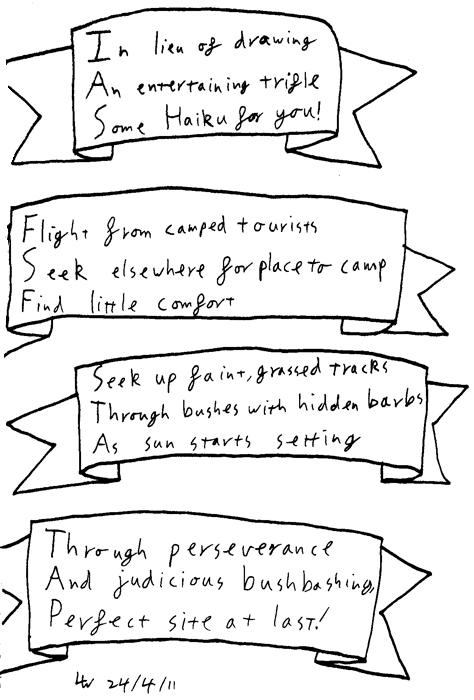 In lieu of drawing
An entertaining trifle
Some Haiku for you!
Flight from camped tourists
Seek elsewhere for place to camp
Find little comfort
Seek up faint, grassed tracks
Through bushes with hidden barbs
As sun starts setting
Through perseverance
And judicious bushbashing,
Perfect site at last!
24/4/11